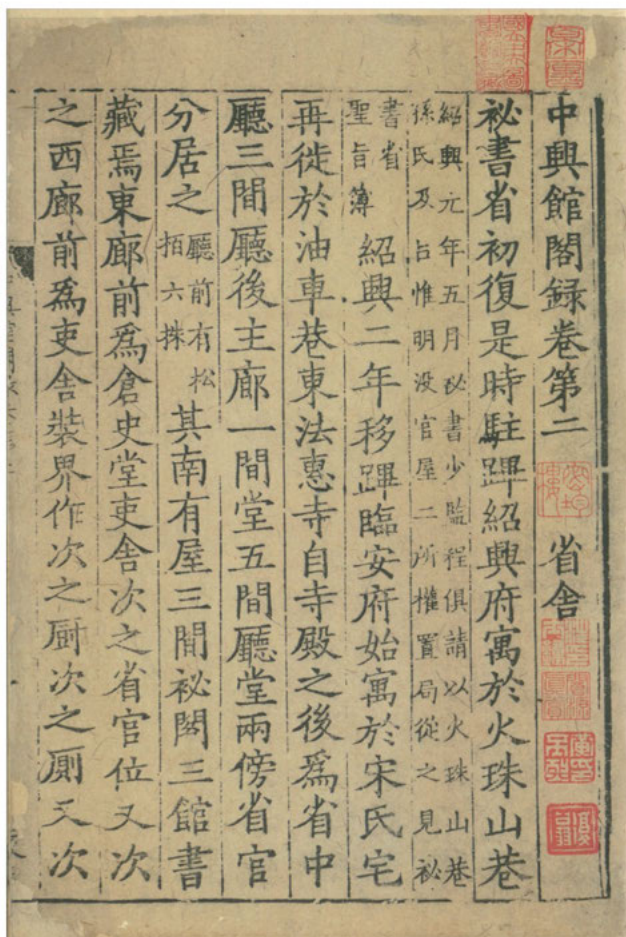 中興館閣録卷第二　省舍
祕書省初復是時駐蹕紹興府寓於火珠山巷
紹興元年五月祕書少監程俱請以火珠山巷
孫氏及吕惟明没官屋二所權置局從之見祕
書省
聖旨簿
紹興二年移蹕臨安府始寓於宋氏宅
再徙於油車巷東法惠寺自寺殿之後爲省中
廳三間廳後主廊一間堂五間廳堂兩傍省官
分居之
廳前有松
栢六株
其南有屋三間祕閣三館書
藏焉東廊前爲倉史堂吏舍次之省官位又次
之西廊前爲吏舍裝界作次之厨次之厠又次